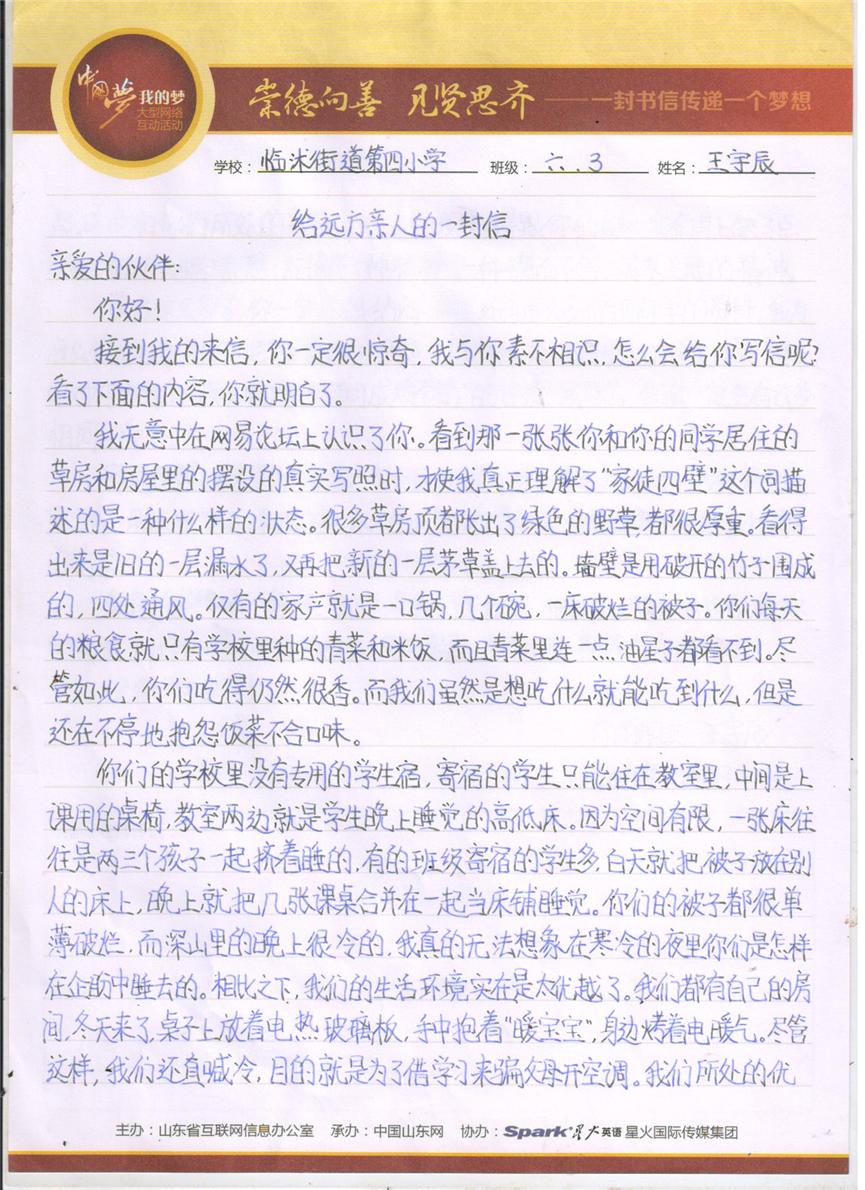 中国梦 我的梦
大型网络
互动活动
崇德向善 见贤思齐 ——一封书信传递一个梦想
学校：临沭街道第四小学 班级：六.3 姓名：王宇辰
给远方亲人的一封信
亲爱的伙伴：
你好！
接到我的来信，你一定很惊奇，我与你素不相识，怎么会给你写信呢？
看了下面的内容，你就明白了。
我无意中在网易论坛上认识了你。看到那一张张你和你的同学居住的
草房和房屋里的摆设的真实写照时，才使我真正理解了“家徒四壁”这个词描
述的是一种什么样的状态。很多草房顶都长出了绿色的野草，都很厚重。看得
出来是旧的一层漏水了，又再把新的一层茅草盖上去的。墙壁是用破开的竹子围成
的，四处通风。仅有的家产就是一口锅，几个碗，一床破烂的被子。你们每天
的粮食就只有学校里种的青菜和米饭，而且青菜里连一点油星子都看不到。尽
管如此，你们吃得仍然很香。而我们虽然是想吃什么就能吃到什么，但是
还在不停地抱怨饭菜不合口味。
你们的学校里没有专用的学生宿，寄宿的学生只能住在教室里，中间是上
课用的桌椅，教室两边就是学生晚上睡觉的高低床。因为空间有限，一张床往
往是两三个孩子一起挤着睡的，有的班级寄宿的学生多，白天就把被子放在别
人的床上，晚上就把几张课桌合并在一起当床铺睡觉。你们的被子都很单
薄破烂，而深山里的晚上很冷的，我真的无法想象在寒冷的夜里你们是怎样
在企盼中睡去的。相比之下，我们的生活环境实在是太优越了。我们都有自己的房
间，冬天来了，桌子上放着电热玻璃板，手中抱着“暖宝宝”，身边烤着电暖气。尽管
这样，我们还直喊冷，目的就是为了借学习来骗父母开空调。我们所处的优
主办：山东省互联网信息办公室 承办：中国山东网 协办：Spark 星火英语 星火国际传媒集团